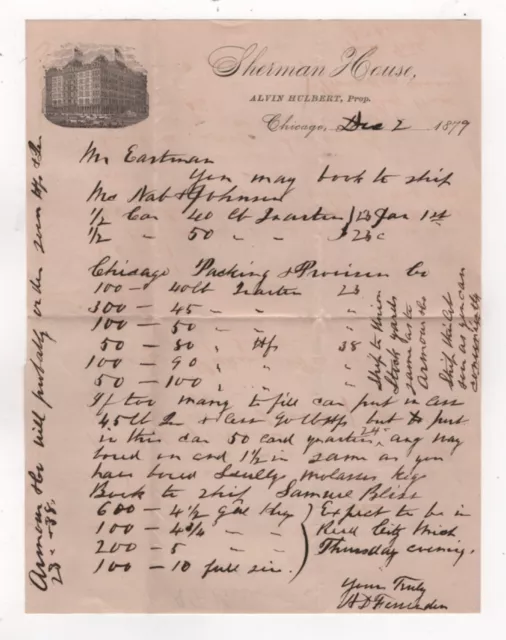 Sherman House,
ALVIN HULBERT, Prop.
Chicago, Dec 2 1879
Mr Eastman
You may book to ship
Mc Nab & Johnson
1/2 Car 40 lb Quarters } 23 Jan 1st
1/2 " 50 " " } 23c
Chicago Packing & Provision Co
100 — 40 lb Quarters 23
300 — 45 " "
100 — 50 " "
50 — 80 " Hfs 38
100 — 90 " " "
50 — 100 " " "
If too many to fill can put in less
45 lb Qr & less 90 lb Hfs but to put
in this car 50 card quarters 24c any way
bored on end 1 1/2 in same as you
have bored Scully molasses kegs
Book to ship Samuel Bliss
600 — 4 1/2 Gal Keg
100 — 4 3/4 " "
200 — 5 " "
100 — 10 full size.
Expect to be in
Reed City Mich
Thursday evening.
Yours Truly
Ship to Union
Stock yards
same as to
Armour &Co
Ship
soon as you can
Armour &Co will probably order seven Hfs & Qr
23 c - 38.